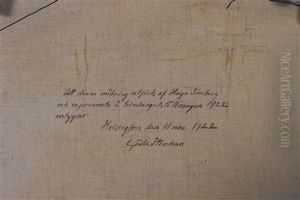 Att denna målning utförts af Hugo Simberg
och exponerats å Simbergutställningen 1922
intygar
Helsingfors den 11 nov. 1922
Gösta Stenman